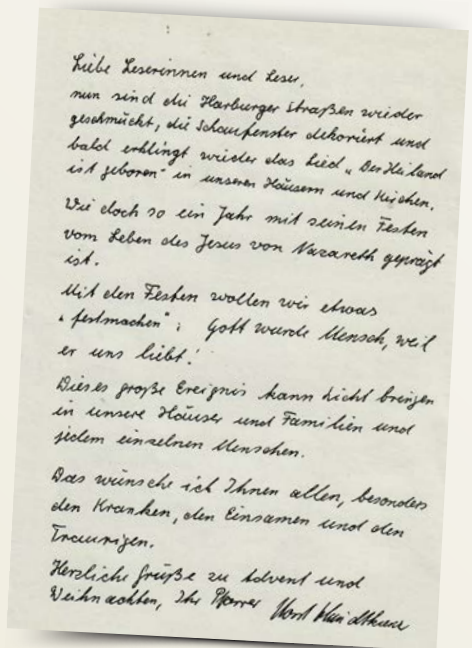 Liebe Leserinnen und Leser,
nun sind die Harburger Straßen wieder
geschmückt, die Schaufenster dekoriert und
bald erklingt wieder das Lied „Der Heiland
ist geboren" in unseren Häusern und Kirchen.
Wie doch so ein Jahr mit seinen Festen
vom Leben des Jesus von Nazareth geprägt
ist.
Mit den Festen wollen wir etwas
„festmachen": Gott wurde Mensch, weil
er uns liebt!
Dieses große Ereignis kann Licht bringen
in unsere Häuser und Familien und
jedem einzelnen Menschen.
Das wünsche ich Ihnen allen, besonders
den Kranken, den Einsamen und den
Traurigen.
Herzliche Grüße zu Advent und
Weihnachten, Ihr Pfarrer